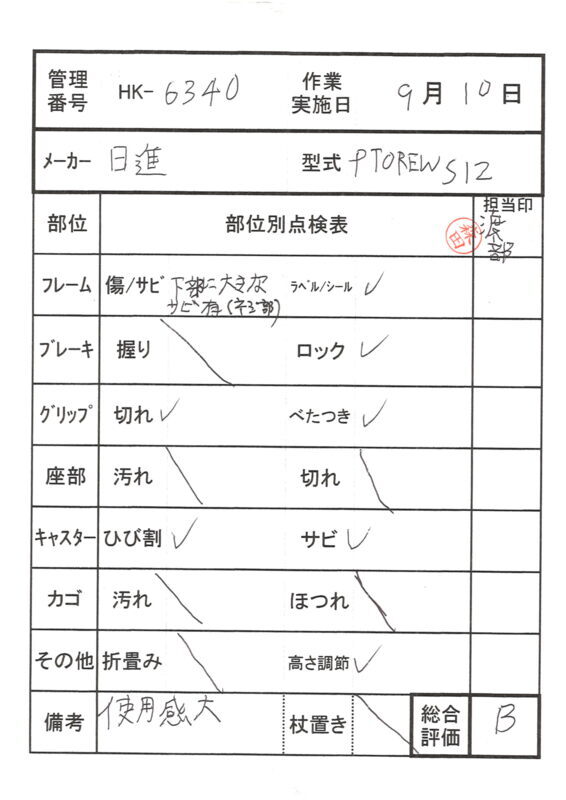 管理番号 HK-6340 作業実施日 9月10日
メーカー 日進 型式 PTOREW S12
部位 部位別点検表 担当印
森田 渡部
フレーム 傷/サビ 下部に大きな ラベル/シール ✓
サビ有(ネジ部)
ブレーキ 握り ロック ✓
グリップ 切れ ✓ べたつき ✓
座部 汚れ 切れ
キャスター ひび割 ✓ サビ ✓
カゴ 汚れ ほつれ
その他 折畳み 高さ調節 ✓
備考 使用感大 杖置き 総合評価 B